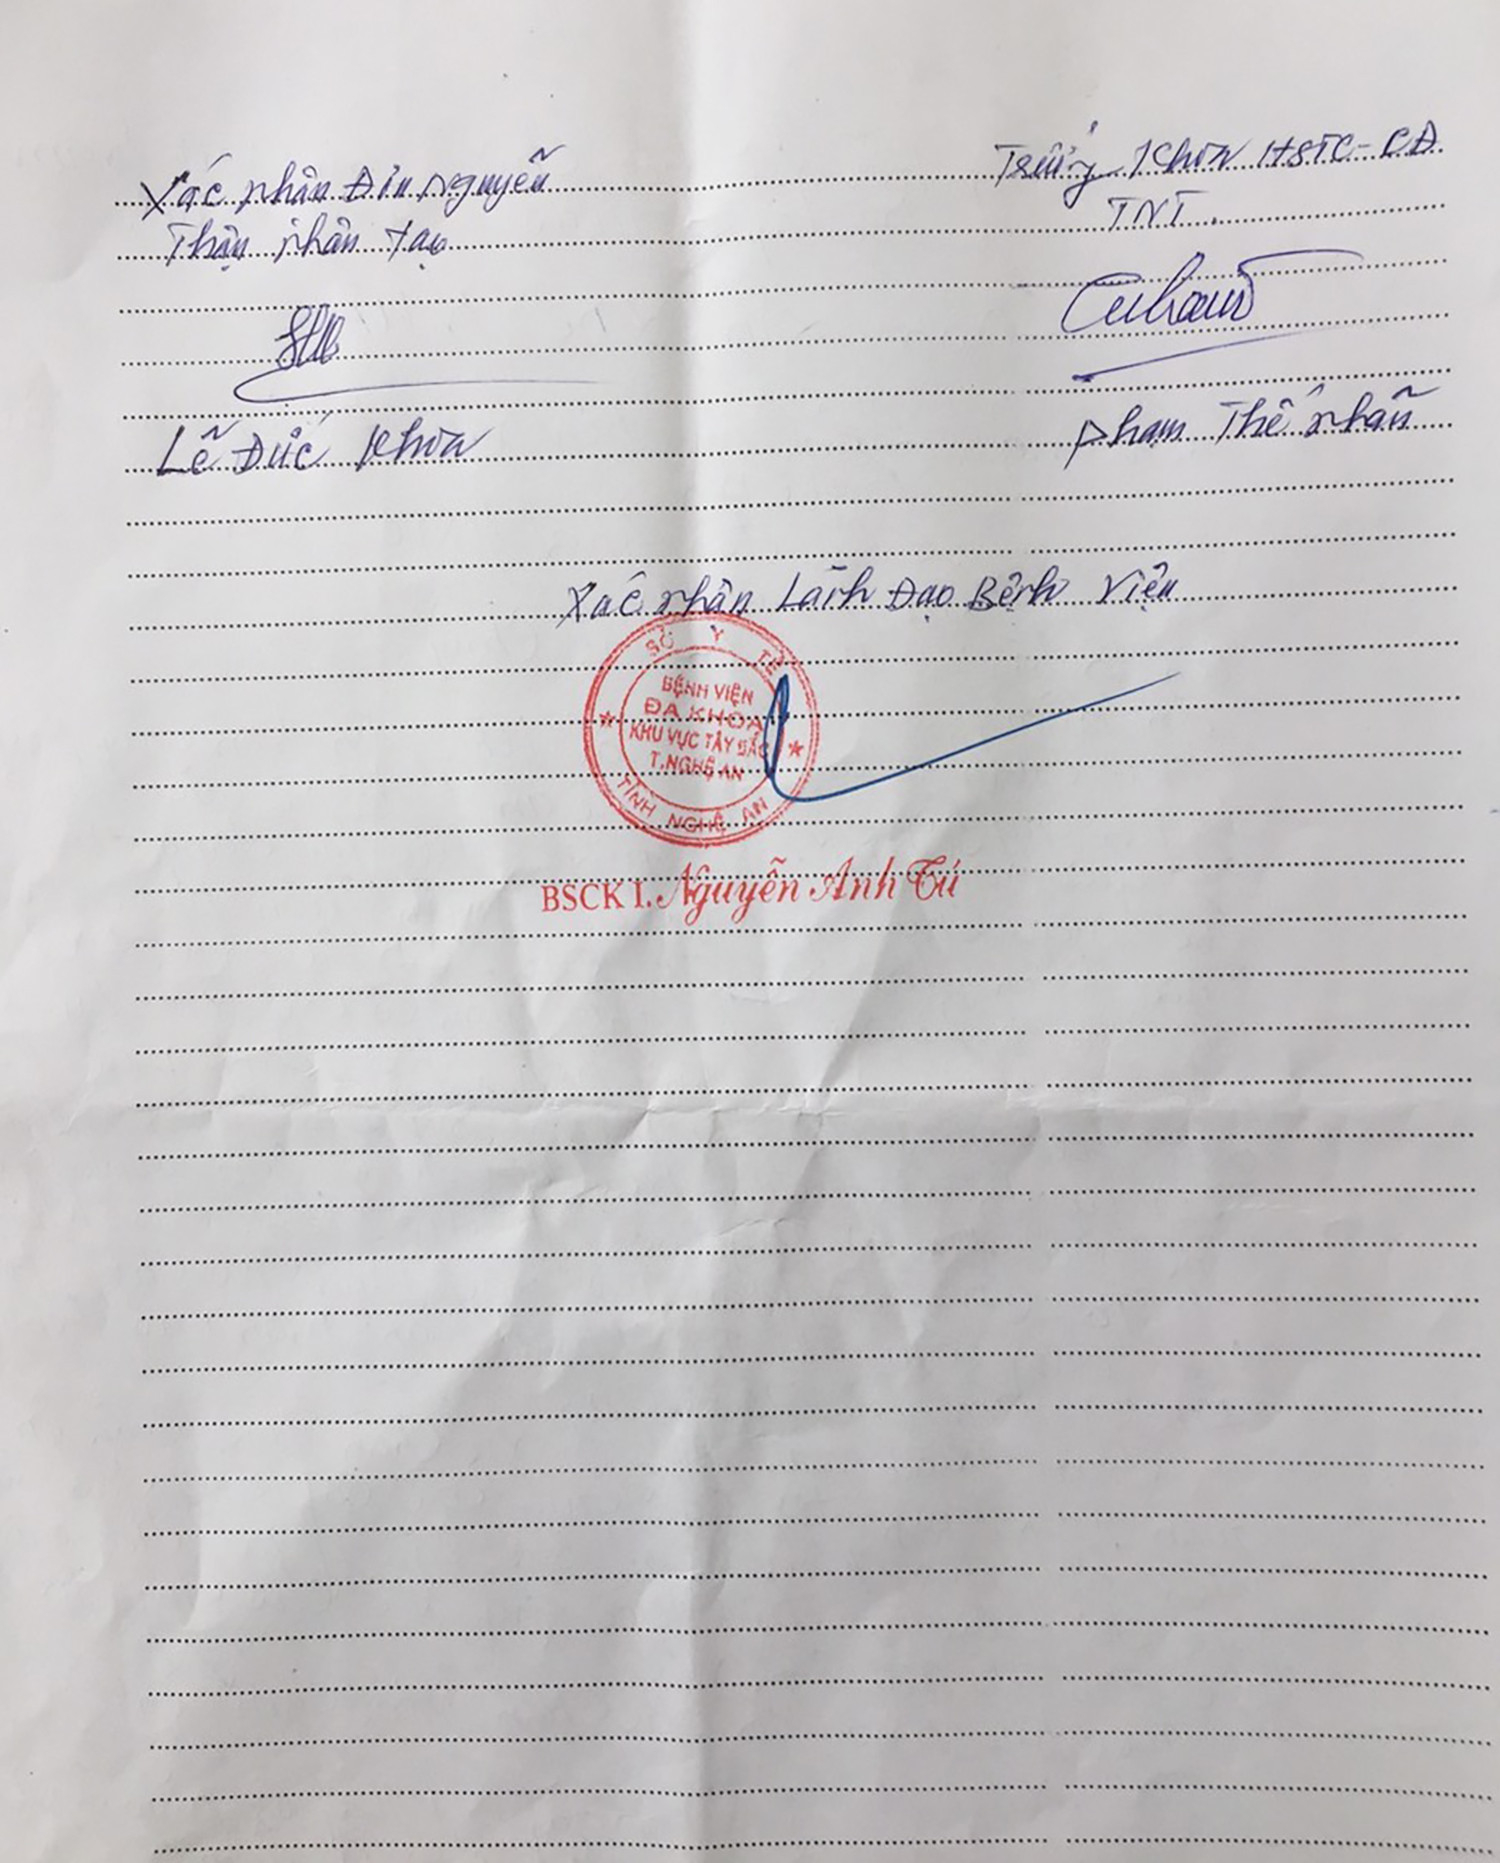 Xác nhận Đơn Nguyên
Thận nhân tạo
Trưởng Khoa HSTC-CĐ
TNT
Lê Đức Khoa
Phạm Thế Nhân
Xác nhận Lãnh Đạo Bệnh Viện
SỞ Y TẾ
BỆNH VIỆN
ĐA KHOA
KHU VỰC TÂY BẮC
T.NGHỆ AN
TỈNH NGHỆ AN
BSCK I. Nguyễn Anh Tú